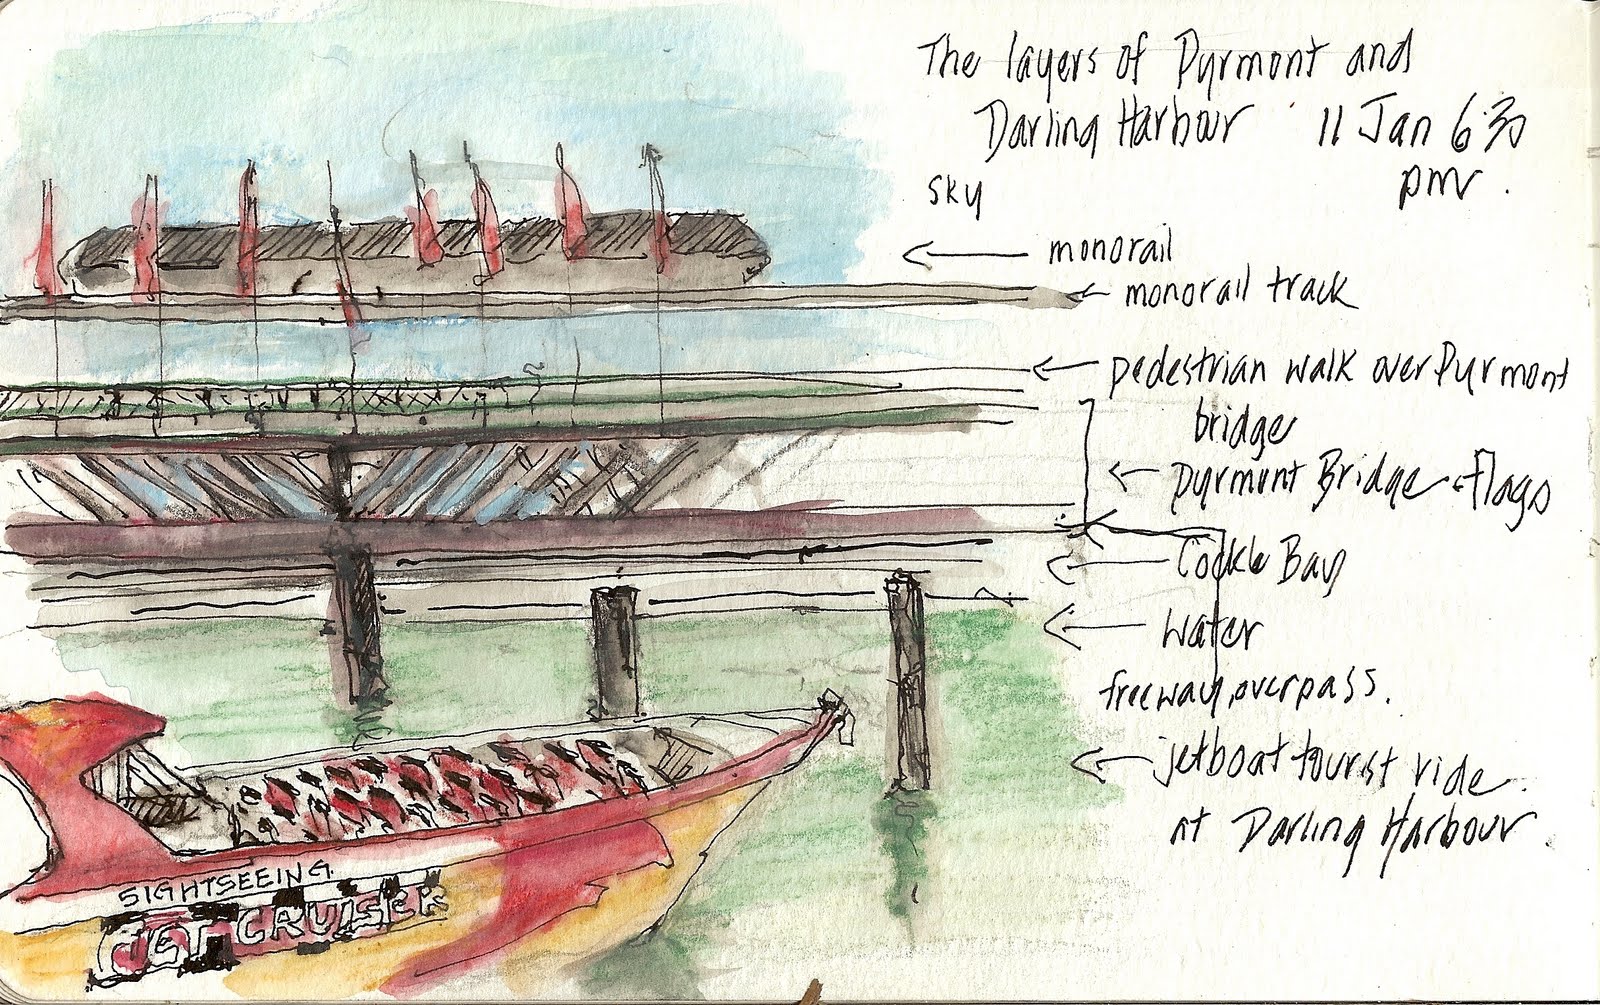 The layers of Pyrmont and
Darling Harbour 11 Jan 6 30
pm.
sky
monorail
monorail track
pedestrian walk over Pyrmont
bridge
Pyrmont Bridge + flags
Cockle Bay
Water
freeway overpass.
jetboat tourist ride.
at Darling Harbour
SIGHTSEEING
JET CRUISER